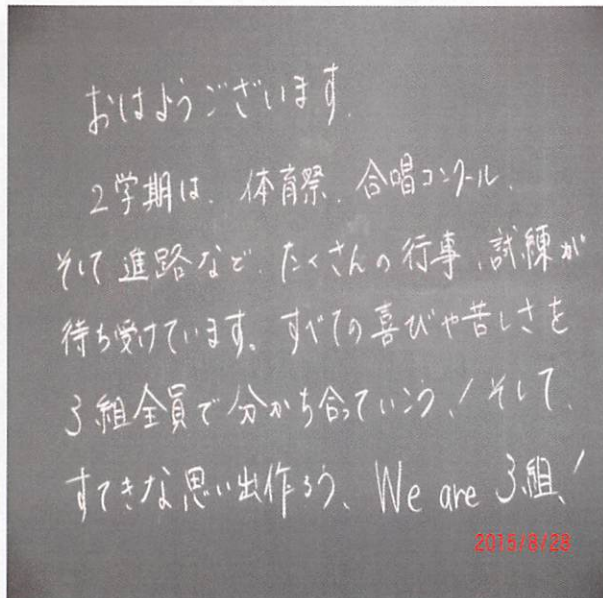 おはようございます。
2学期は、体育祭、合唱コンクール、
そして進路など、たくさんの行事、試練が
待ち受けています。すべての喜びや苦しさを
3組全員で分かち合っていこう!そして、
すてきな思い出作ろう、We are 3組!
2015/8/28